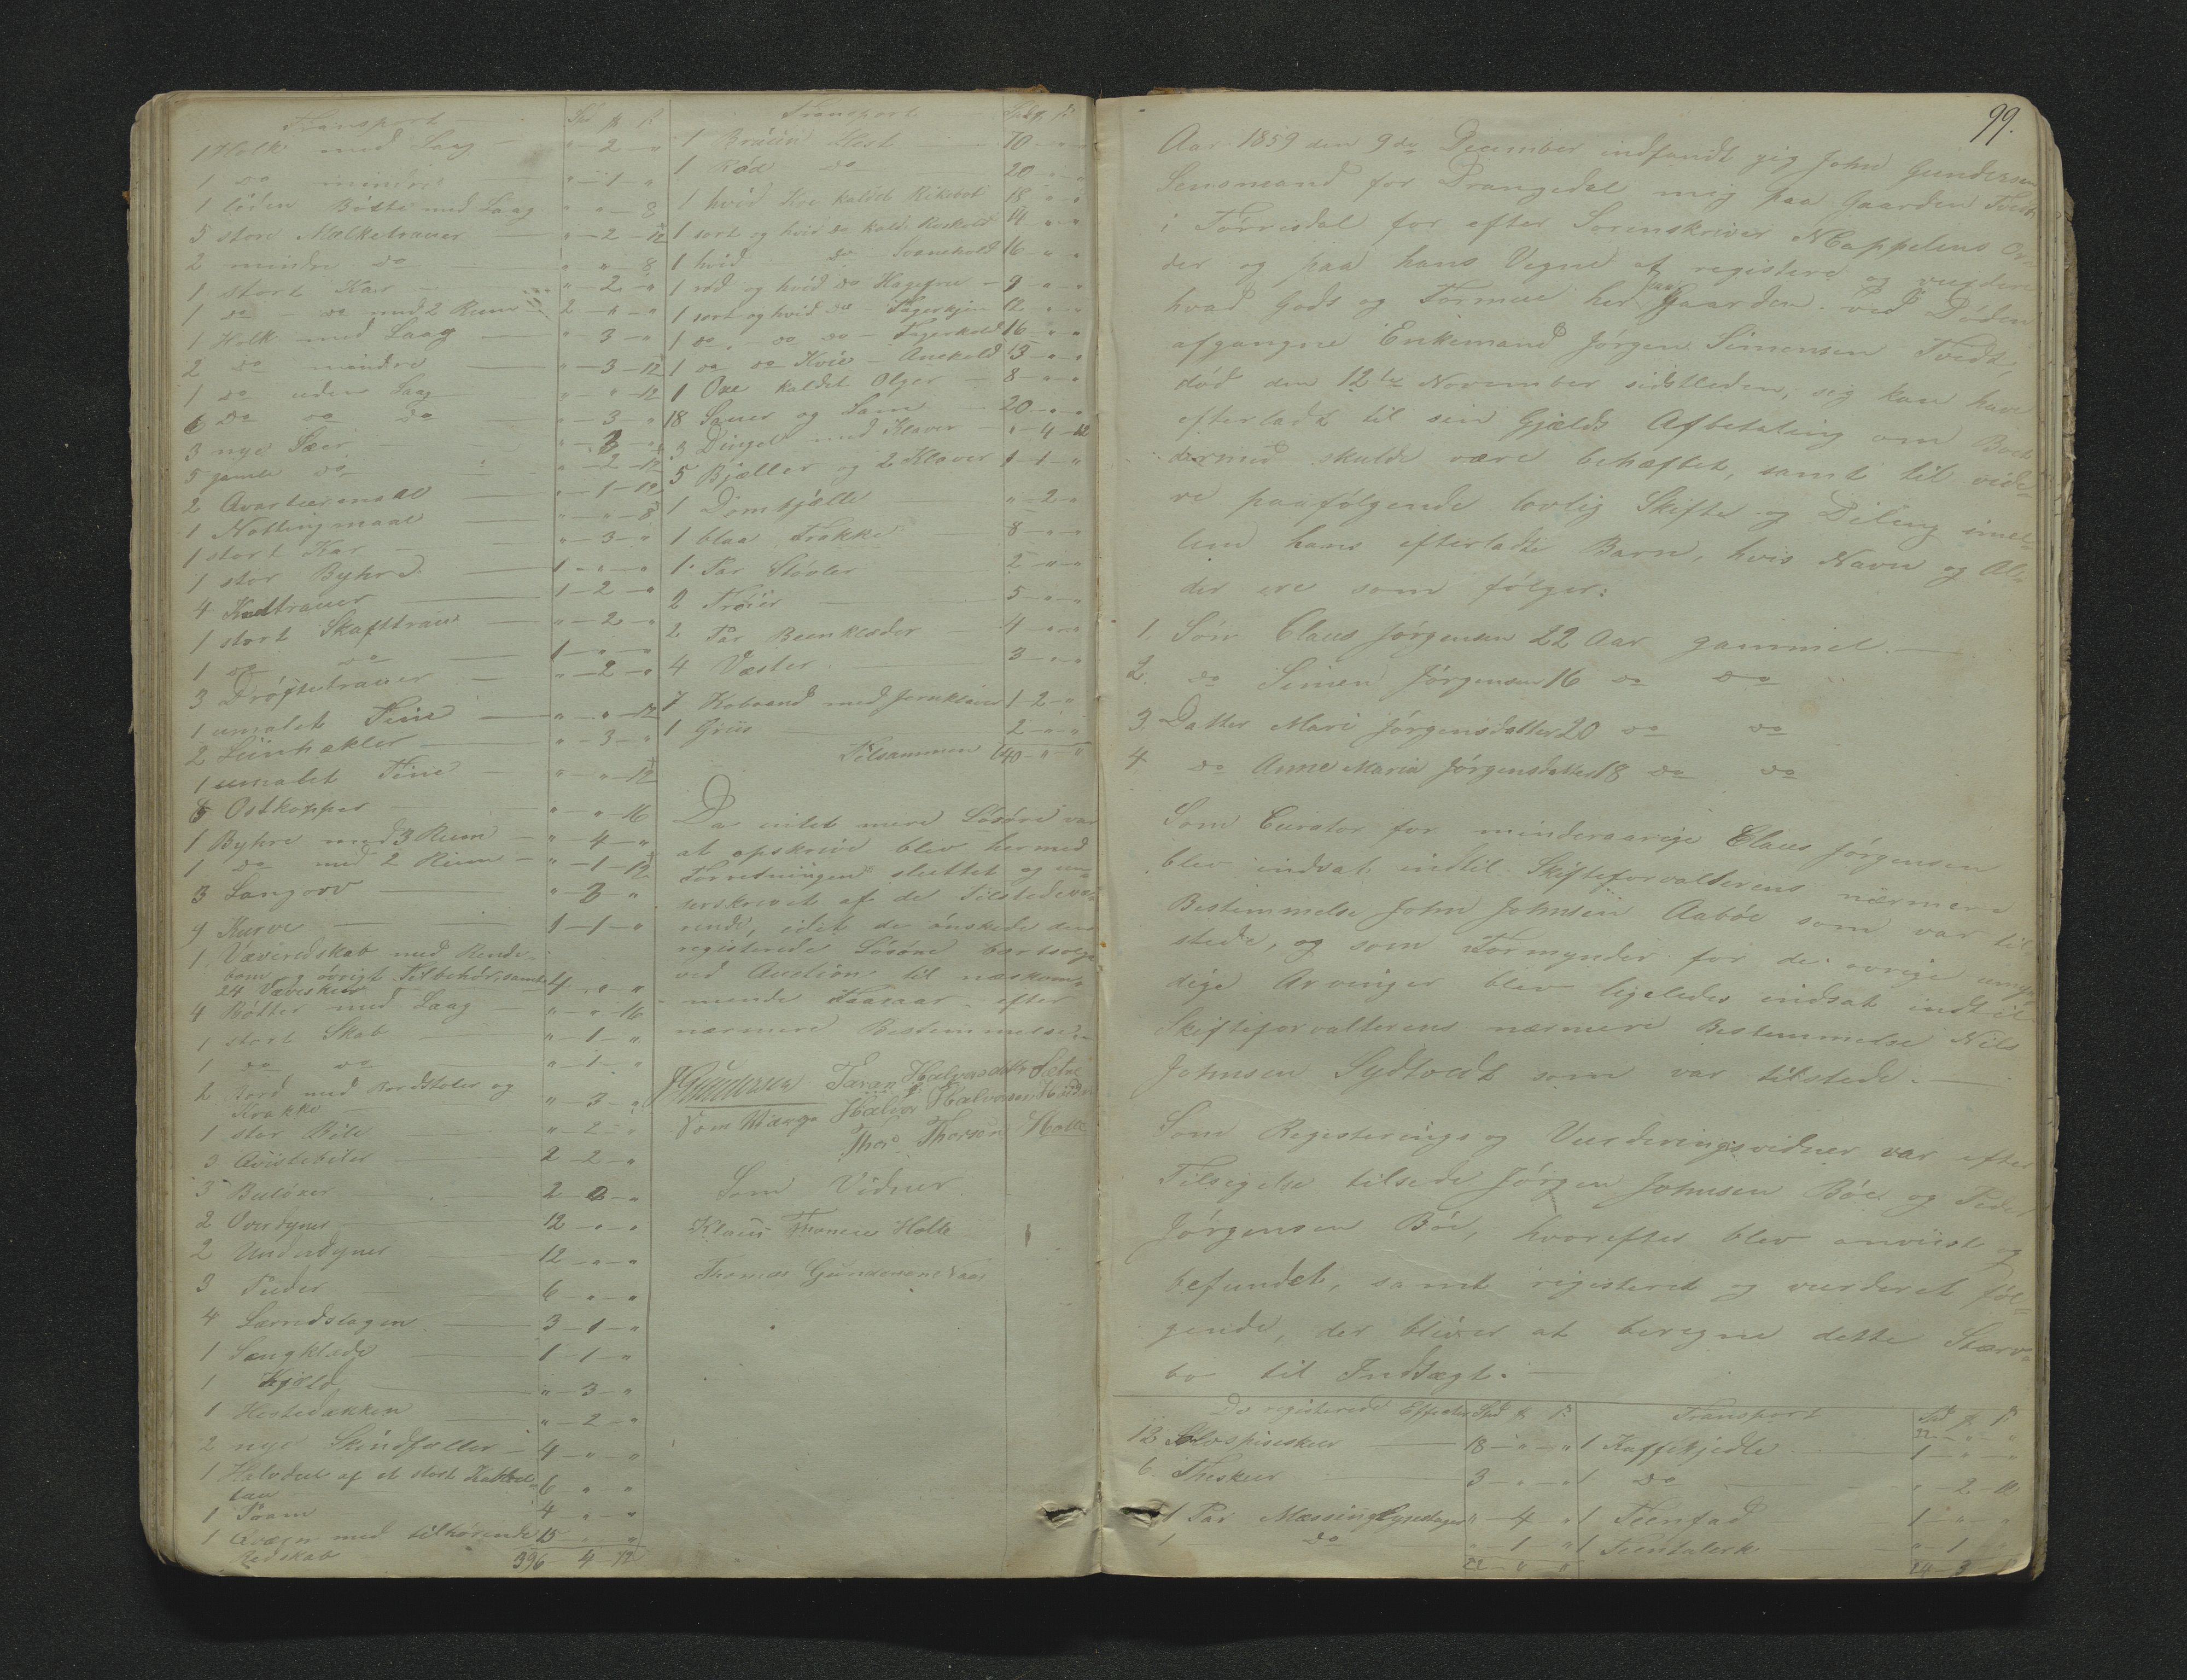 Transport
1 Holk med Laag — " - 2 - "
1 do mindre — " - 1 - "
1 liden Bøtte med Laag " - " - 8
5 store Mælketrauer — " - 2 - 12
2 mindre do — " - " - 8
1 stort Kar — " - 2 - "
1 do - do med 2 Rum 2 - " - "
1 Holk med Laag — " - 3 - "
2 do mindre — " - 3 - 12
1 do uden Laag — " - " - 12
6 do do do — " - 3 - "
3 nye Sæer
5 gamle do — " - 2 - 12
2
1 — " - " - 8
1 stort Kar — " - 3 - "
1 stor Byhre 1 - " - "
4 Kadtrauer — 1 - 2 - "
1 stort Skafttrau — " - 2 - "
1 do do — 1 - " - "
3 Drøftetrauer — " - 2 - "
1 umalet Tine — " - " - 12
2 Liinhækler — " - 3 - "
1 umalet Tine — " - " - 12
6 Ostkopper — " - " - 16
1 Byhre med 3 Rum — " - 4 - "
1 do med 2 Rum — " - 1 - 12
3 Langorv — " - 2 - "
9 Kurve — 1 - 1 - "
1 Væveredskab med Rende-
bom og øvrigt Tilbehør, samt
24 Væveskeer 4 - " - "
4 Bøtter med Laag — " - " - 16
1 stort Skab — " - 1 - "
1 do do — " - 1 - "
2 Bord med Bordstoler og
Krakke — " - 3 - "
1 stor Bile — " - 2 - "
3 — 2 - 2 - "
3 Buløxer — 2 - 2 - "
2 Overdyner — 12 - " - "
2 Underdyner 12 - " - "
3 Puder 6 - " - "
4 Lærredslagen — 3 - 1 - "
1 Sengklæde — 1 - 1 - "
1 — " - 3 - "
1 Hestedækken — " - 2 - "
2 nye Skindfæller — 4 - " - "
1 Halvdeel af et stort
tau 6 " "
1 Pram 4 - " - "
1 Qværn med tilhørende 15 - " - "
Redskab 396 4 - 12
Transport
1 Hest — 70 - " - "
1 Rød do — 20 - " - "
1 hvid Koe kaldet 18 - " - "
1 sort og hvid do kald. 14 - " - "
1 hvid do Svanehold 16 - " - "
1 rød og hvid do Hagefrue — 9 - " - "
1 sort og hvid do — Fagerskjøn 12 - " - "
1 do - do do — Fagerhold 16 - " - "
1 do do Kvie —
1 Oxe kaldet Olger — 8 - " - "
18 Sauer og Lam — 20 - " - "
3 med Klaver — " - 4 - 12
5 Bjeller og 2 Klaver 1 - 1 - "
1 Dombjælle — " - 2 - "
1 blaa Frakke — 8 - " - "
1 Par Støvler — 2 - " - "
2 Trøier — 5 - " - "
2 Par Beenklæder — 4 - " - "
4 Vester — 3 - " - "
7 Kobaand med Jernklaver 1 - 2 - "
1 Griis — 2 - " - "
Tilsammen 640 - " - "
Da intet mere Løsøre var
at opskrive blev hermed
Forretningen sluttet og un-
derskrevet af de Tilstedevæ-
rende, idet de ønskede den
registerede Løsøre bortsolgt
ved Auction til næstkom-
mende Vaaraar efter
nærmere Bestemmelse.
JGundersen Taran Halvorsdatter
som Værge Halvor Halvorsen
Thor Thorsen Holte
Som Vidner
Klaus Thomesen Holte
Thomas Gundersen Naas
99.
Aar 1859 den 9de December indfandt jeg John Gundersen
Lensmand for Drangedal mig paa Gaarden Tvedt
i Tørrisdal for efter Sorenskriver NCappelens Or-
der og paa hans Vegne at registere og vurdere
hvad Gods og Formue her paa Gaarden ved Døden
afgangne Enkemand Jørgen Simensen Tvedt,
død den 12te November sidstleden, sig kan have
efterladt til sin Gjælds Afbetaling om Boet
dermed skulde være behæftet, samt til vide-
re paafølgende lovlig Skifte og Deling imel-
lem hans efterladte Barn, hvis Navn og Al-
der ere som følger:
1. Søn Claus Jørgensen 22 Aar gammel. —
2. do Simen Jørgensen 16 do do
3. Datter Mari Jørgensdatter 20 do do
4. do Anne Maria Jørgensdatter 18 do do
Som Curator for minderaarige Claus Jørgensen
blev indsat indtil Skifteforvalterens nærmere
Bestemmelse John Johnsen Aabøe som var til-
stede, og som Formynder for de øvrige umyn-
dige Arvinger blev ligeledes indsat indtil
Skifteforvalterens nærmere Bestemmelse Nils
Johnsen Sydtvedt som var tilstede. —
Som Registerings og Vurderingsvidner var efter
Tilsigelse tilstede Jørgen Johnsen Bøe og Peder
Jørgensen Bøe, hvorefter blev anviist og
befundet, samt registeret og vurderet føl-
gende, der bliver at beregne dette Stærv-
bo til Indtægt. —
De registerede Effecter Spd ƒ ß
12 Sølvspiseskeer — 18 - " - "
6 Theskeer — 3 - " - "
1 Par Messinglysestager " - 4 - "
1 do " - 1 - "
22 - " - "
Transport Spd ƒ ß
22 - " - "
1 Kaffekjedle — 1 - " - "
1 do — " - 2 -
1 Teenfad — 1 - " - "
1 Teentalerk — " - 1 - "
24 - 3